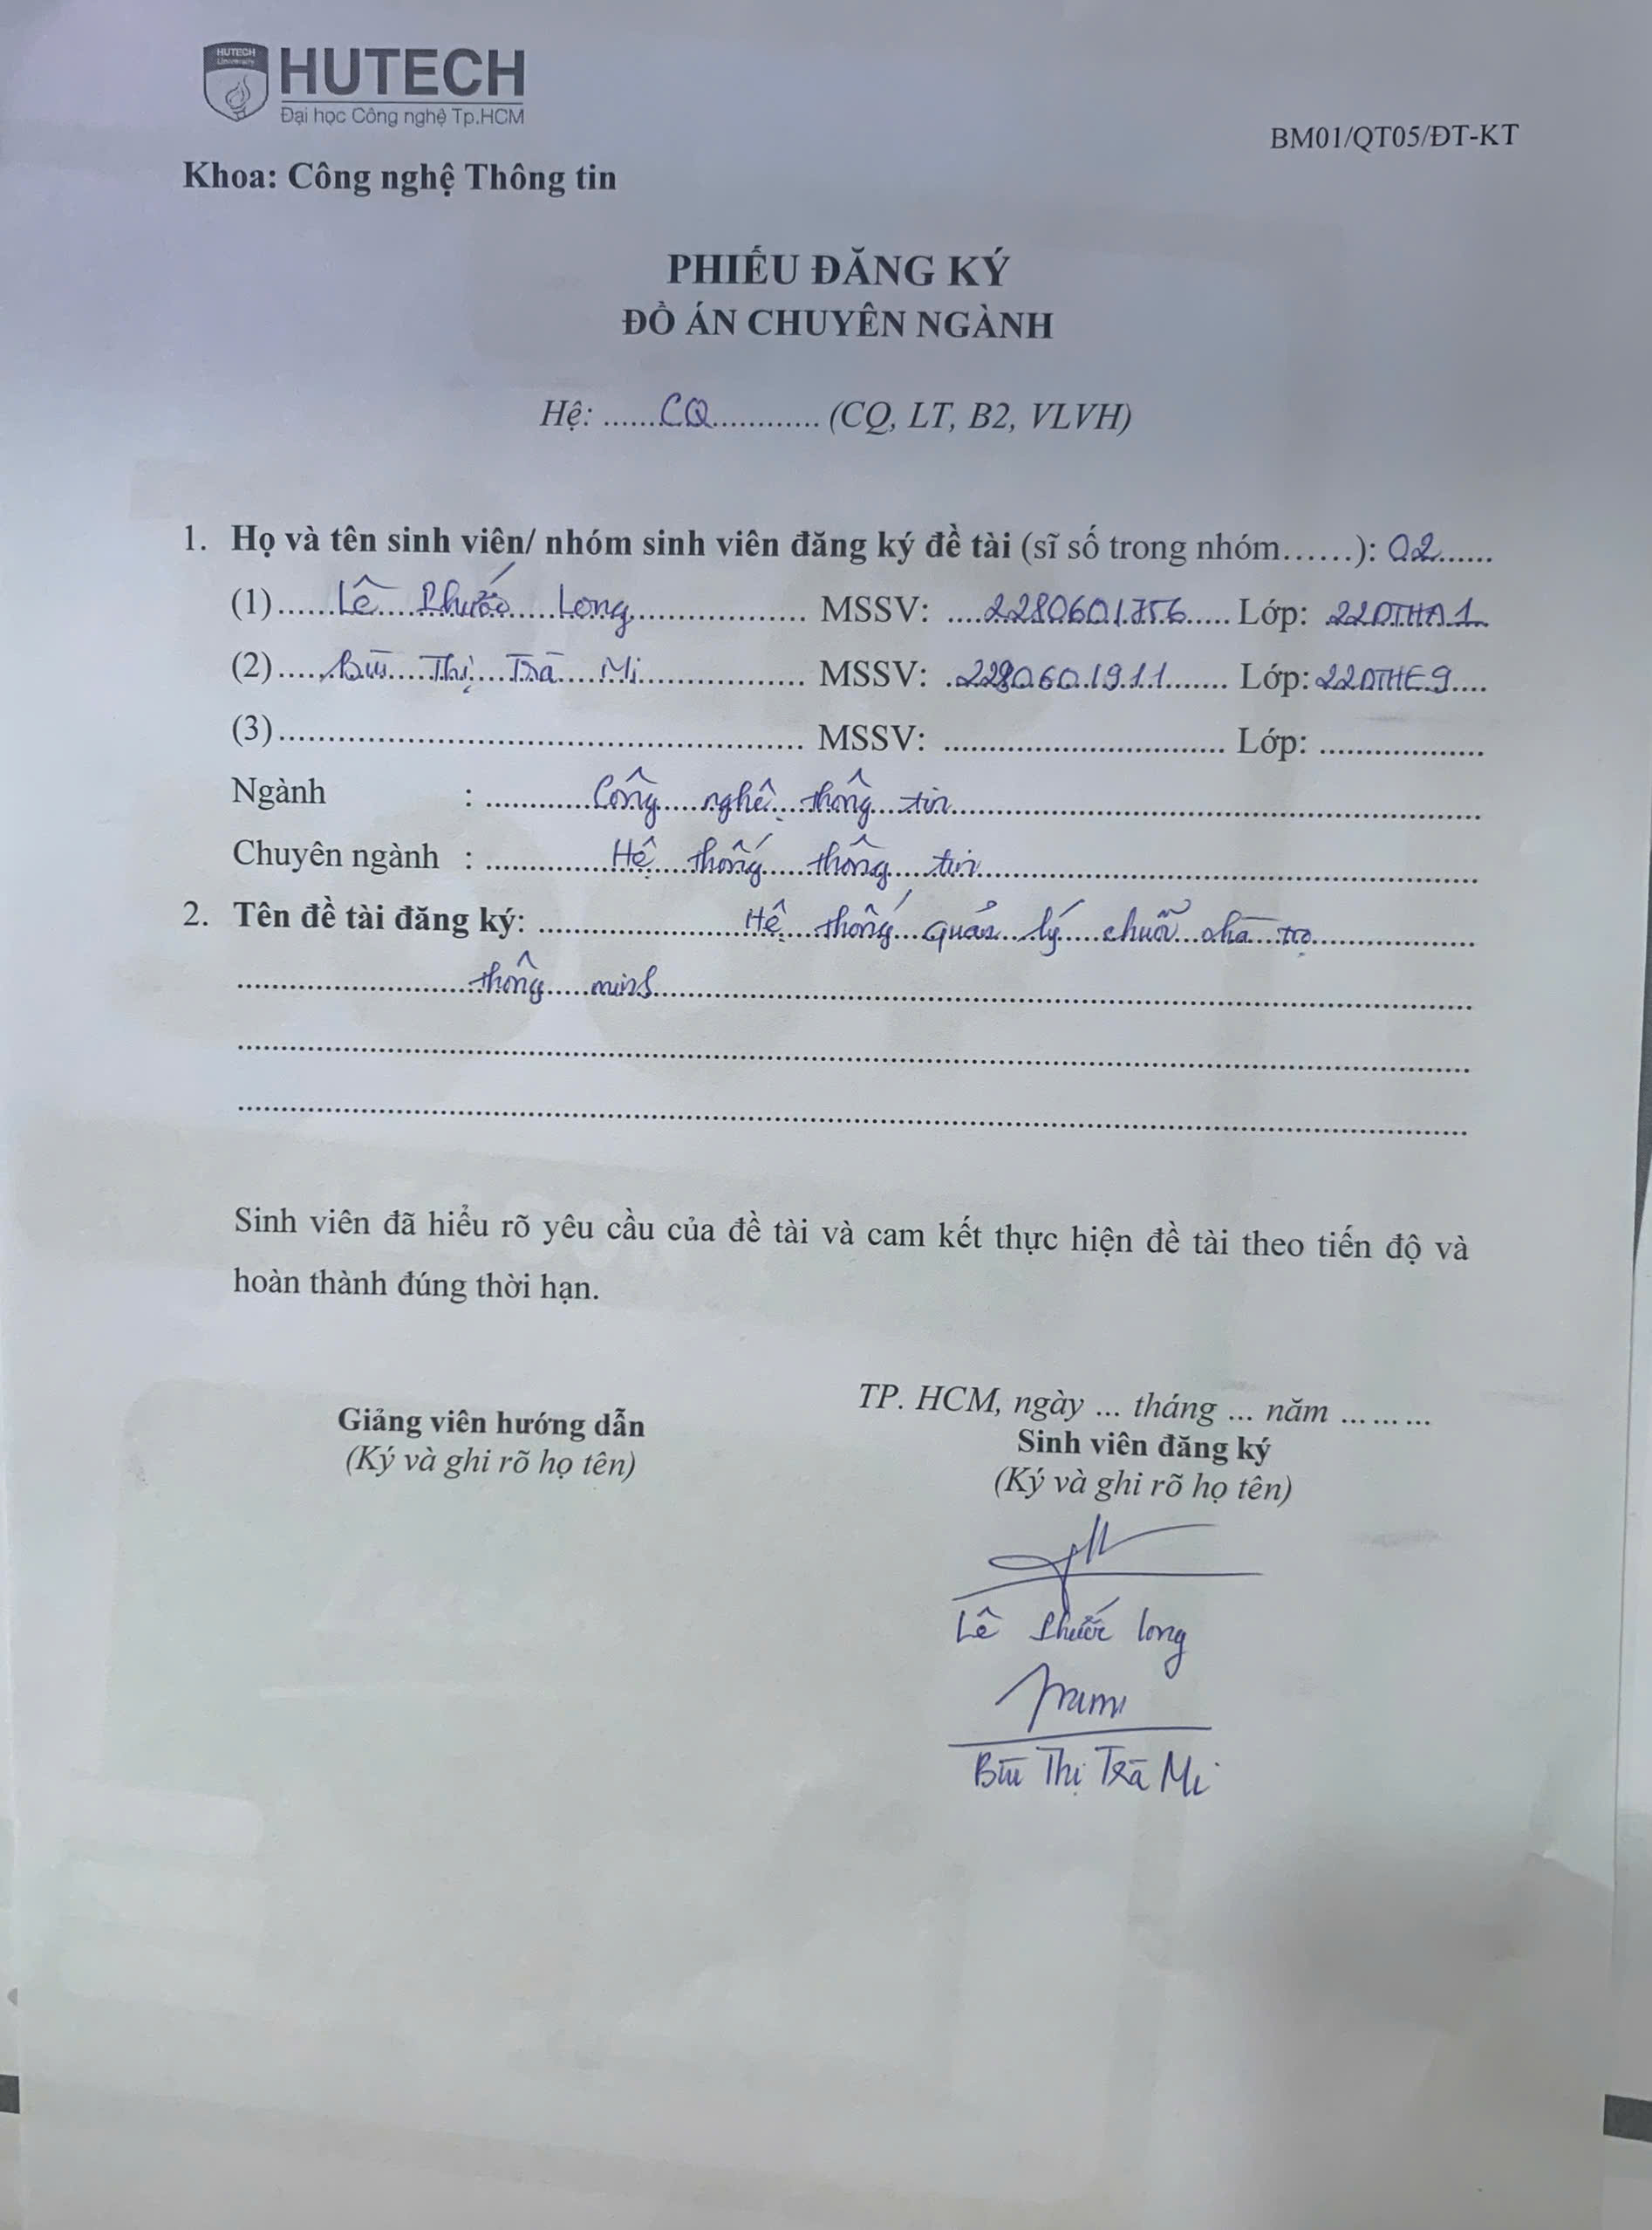 HUTECH
University
HUTECH
Đại học Công nghệ Tp.HCM
BM01/QT05/ĐT-KT
Khoa: Công nghệ Thông tin
PHIẾU ĐĂNG KÝ
ĐỒ ÁN CHUYÊN NGÀNH
Hệ: ......CQ............ (CQ, LT, B2, VLVH)
1. Họ và tên sinh viên/ nhóm sinh viên đăng ký đề tài (sĩ số trong nhóm……): 02......
(1)......Lê Phước Long.................. MSSV: ....2280601756..... Lớp: 22DTHA1
(2)....Bùi Thị Trà Mi.................. MSSV: .2280601911....... Lớp: 22DTHE9....
(3)...................................................... MSSV: ............................... Lớp: ..................
Ngành : ............Công nghệ thông tin..........................................................
Chuyên ngành : ..............Hệ thống thông tin.......................................................
2. Tên đề tài đăng ký: .......................Hệ thống quản lý chuỗi nhà trọ..................
..........................thông minh..........................................................................................
..........................................................................................................................................
..........................................................................................................................................
Sinh viên đã hiểu rõ yêu cầu của đề tài và cam kết thực hiện đề tài theo tiến độ và
hoàn thành đúng thời hạn.
TP. HCM, ngày ... tháng ... năm ………
Giảng viên hướng dẫn
(Ký và ghi rõ họ tên)
Sinh viên đăng ký
(Ký và ghi rõ họ tên)
Lê Phước Long
Bùi Thị Trà Mi